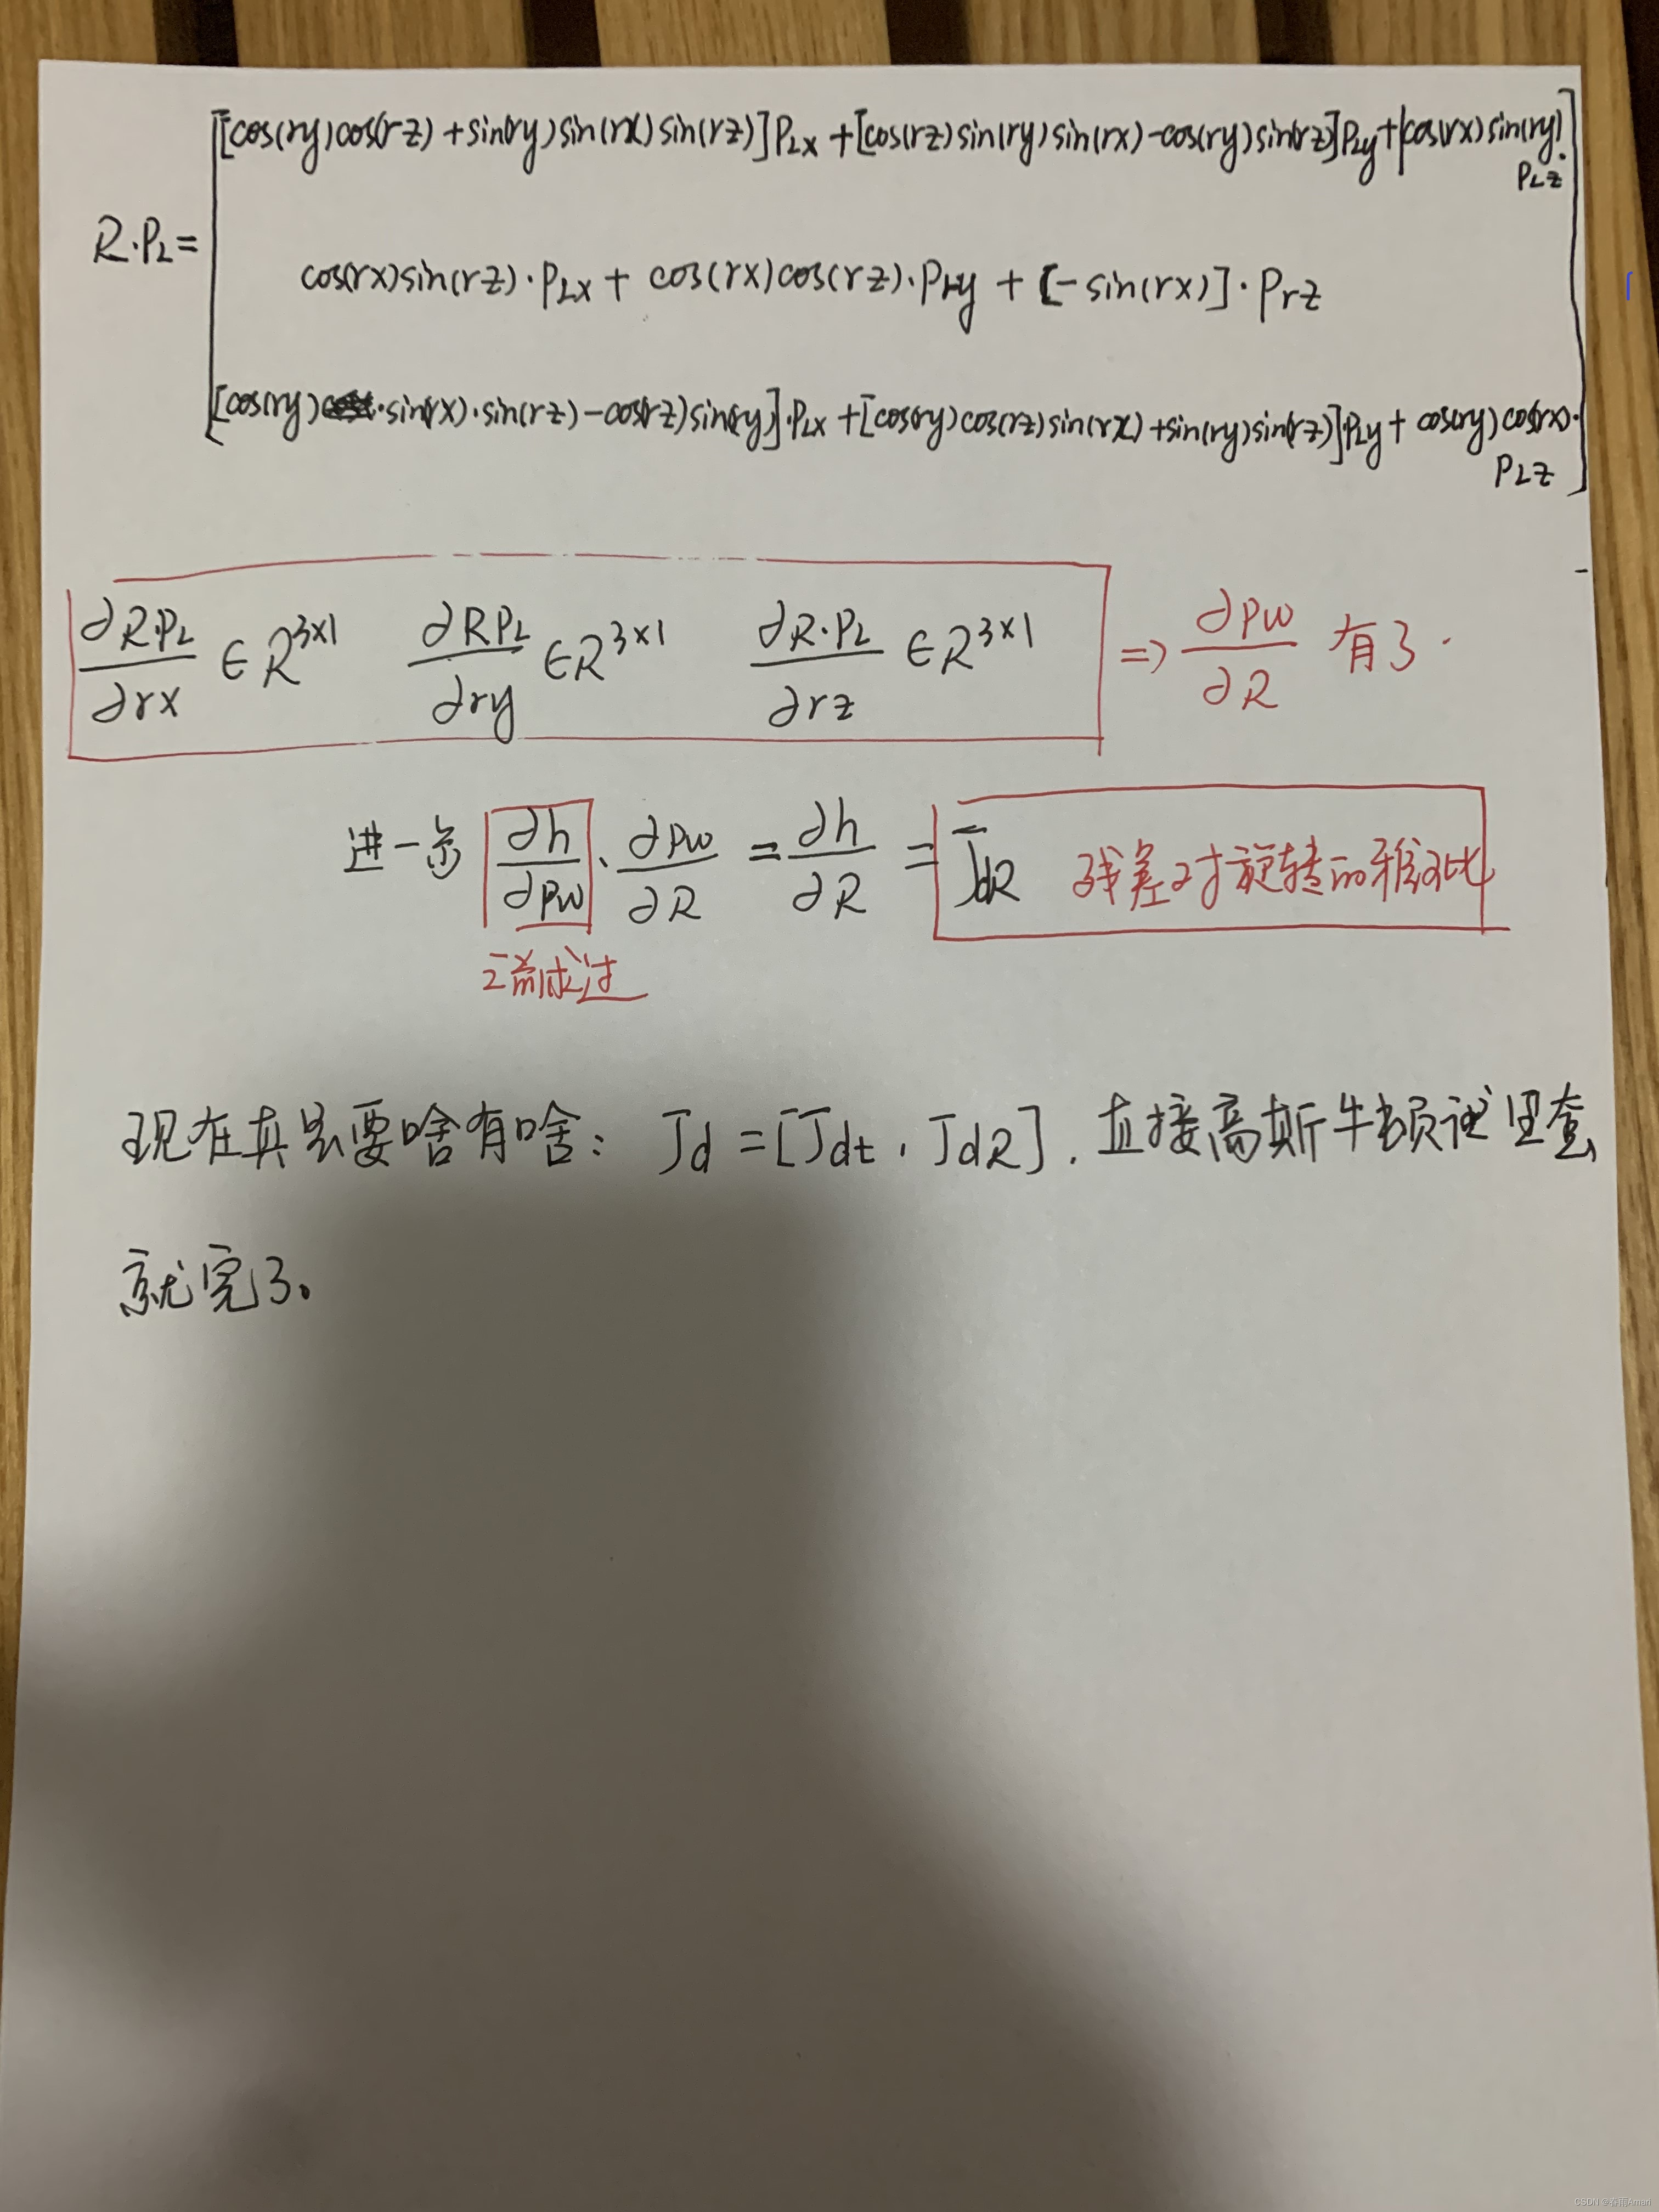 [cos(ry)cos(rz)+sin(ry)sin(rx)sin(rz)]PLx+[cos(rz)sin(ry)sin(rx)-cos(ry)sin(rz)]PLy+[cos(rx)sin(ry)]·
PLz
R·PL=
cos(rx)sin(rz)·PLx+cos(rx)cos(rz)·PLy+[-sin(rx)]·Prz
[cos(ry)·sin(rx)·sin(rz)-cos(rz)sin(ry)]·PLx+[cos(ry)cos(rz)sin(rx)+sin(ry)sin(rz)]PLy+cos(ry)cos(rx)·
PLz
∂R·PL/∂rx ∈R^3×1 ∂RPL/∂ry ∈R^3×1 ∂R·PL/∂rz ∈R^3×1 => ∂Pw/∂R 有了.
进一步 ∂h/∂Pw · ∂Pw/∂R = ∂h/∂R = JdR 残差对旋转的雅可比
之前求过
现在真是要啥有啥: Jd=[Jdt, JdR]. 直接高斯牛顿 里套
就完了。
CSDN @春雨Aman